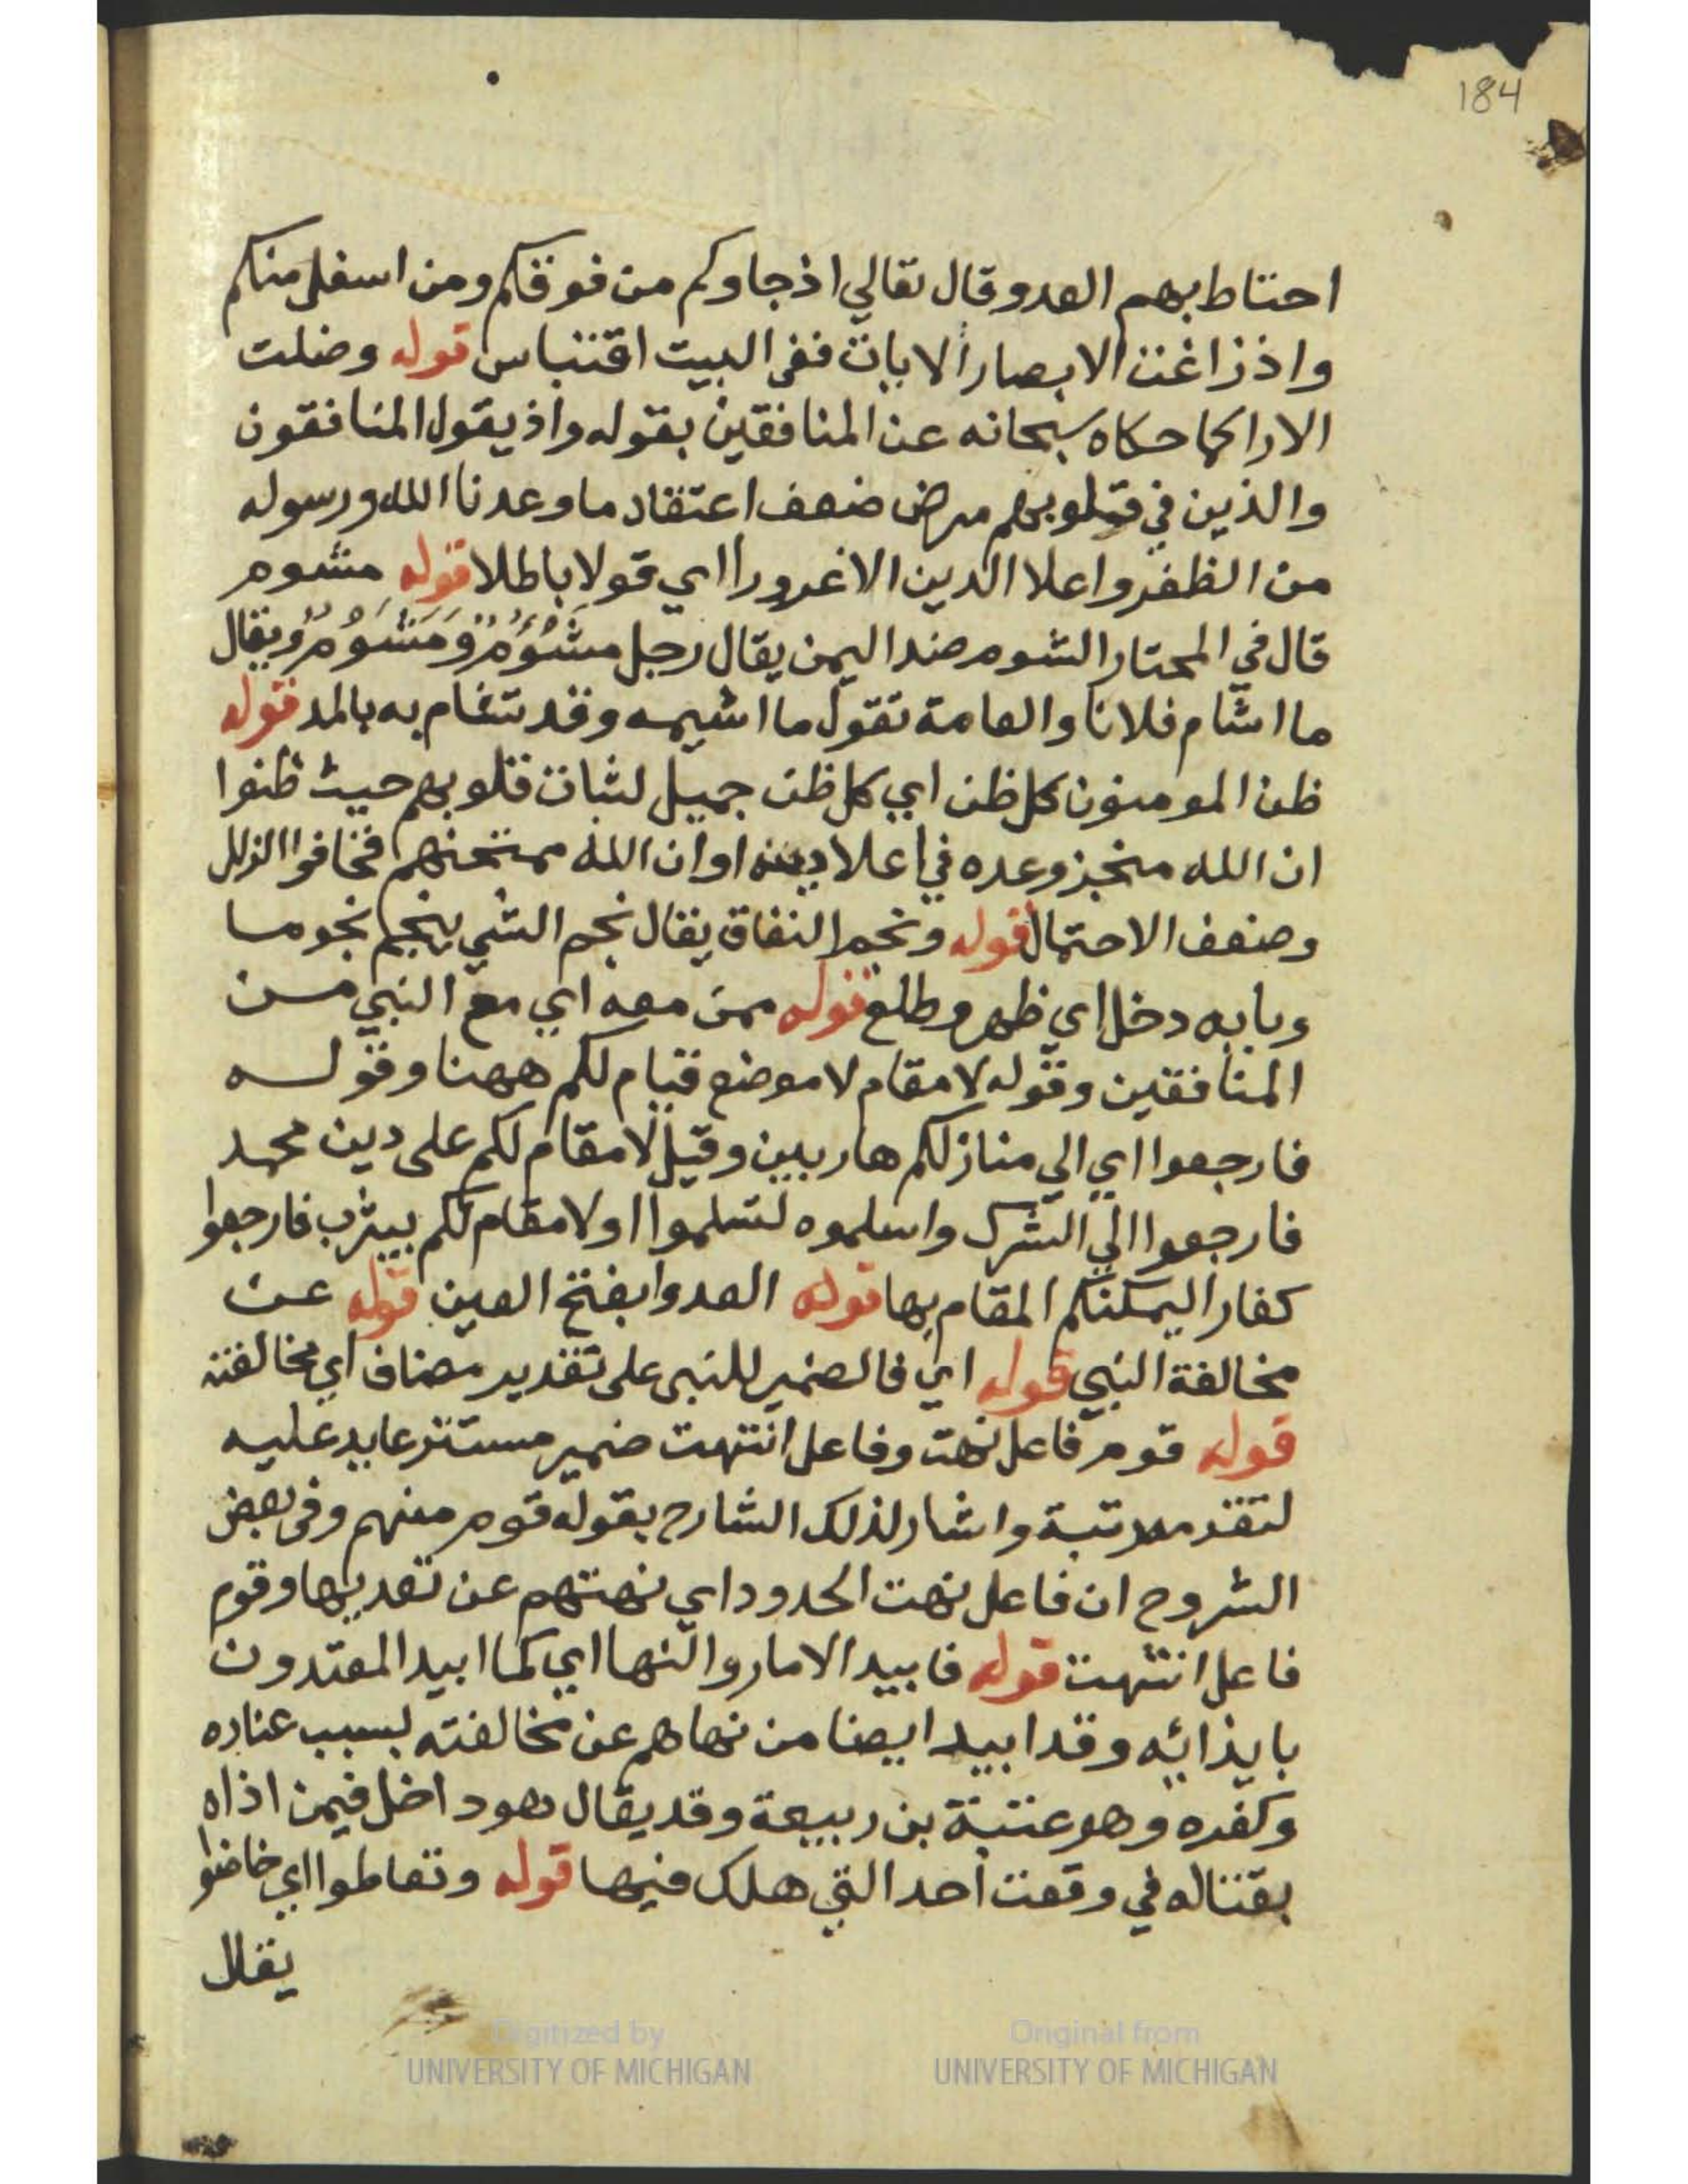 184
احتاط بهم العدو وقال تعالي اذ جاوكم من فوقكم ومن اسفل منكم
واذ زاغت الابصار الايات ففي البيت اقتباس قوله وضلت
الارا كما حكاه سبحانه عن المنافقين بقوله واذ يقول المنافقون
والذين في قلوبهم مرض ضعف اعتقاد ما وعدنا الله ورسوله
من الظفر واعلا الدين الا غرورا اي قولا باطلا قوله مشوم
قال في المختار الشوم ضد اليمن يقال رجل مشؤم ومشوم ويقال
ما اشام فلانا والعامة تقول ما اشيمه وقد تشام به بالمد قوله
ظن المومنون كل ظن اي كل ظن جميل لثبات قلوبهم حيث ظنوا
ان الله منجز وعده في اعلا دينه او ان الله ممتحنهم فخافوا الزلل
وضعف الاحتمال قوله ونجم النفاق يقال نجم الشي ينجم نجوما
وبابه دخل اي ظهر وطلع قوله ممن معه اي مع النبي من
المنافقين وقوله لا مقام لا موضع قيام لكم ههنا وقوله
فارجعوا اي الي منازلكم هاربين وقيل لا مقام لكم على دين محمد
فارجعوا الي الشرك واسلموه لتسلموا او لا مقام لكم بيثرب فارجعوا
كفارا ليمكنكم المقام بها قوله العدوا بفتح العين قوله عن
مخالفة النبي قوله اي فالضمير للنبي على تقدير مضاف اي مخالفته
قوله قوم فاعل نهت وفاعل انتهت ضمير مستتر عايد عليه
لتقدمه رتبة واشار لذلك الشارح بقوله قوم منهم وفي بعض
الشروح ان فاعل نهت الحدود اي نهتهم عن تعديها وقوم
فاعل انتهت قوله فابيد الامار والنها اي كما ابيد المعتدون
بايذائه وقد ابيد ايضا من نهاهم عن مخالفته بسبب عناده
وكفره وهو عتبة بن ربيعة وقد يقال هو داخل فيمن اذاه
بقتاله في وقعت احد التي هلك فيها قوله وتعاطوا اي خاضوا
يقال
Digitized by
UNIVERSITY OF MICHIGAN
Original from
UNIVERSITY OF MICHIGAN